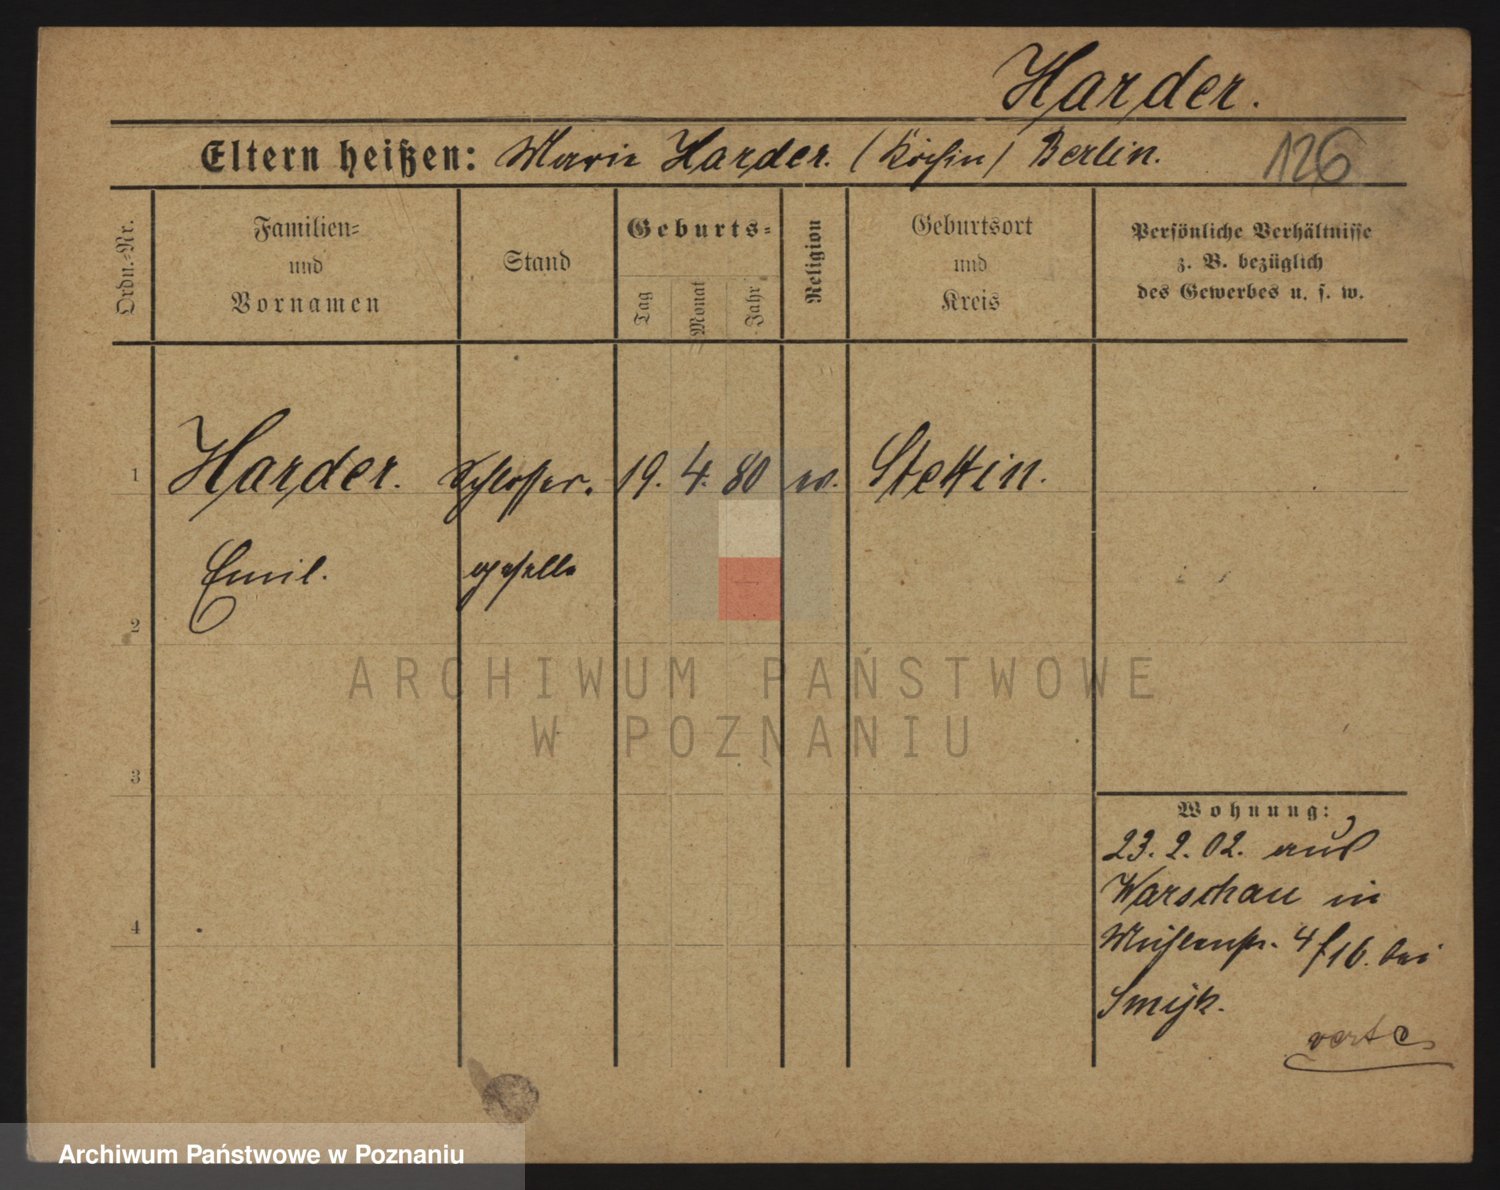 Harder.
Eltern heißen: Marie Harder. (Köchin) Berlin.
126
Ordn.-Nr.
Familien-
und
Vornamen
Stand
Geburts-
Tag
Monat
Jahr
Religion
Geburtsort
und
Kreis
Persönliche Verhältnisse
z. B. bezüglich
des Gewerbes u. s. w.
1 Harder. Schlosser. 19. 4. 80 Stettin.
Emil. geselle
2
3
4
Wohnung:
23. 2. 02. aus
Warschau in
Mühlenstr. 4 bei
verte
ARCHIWUM PAŃSTWOWE
W POZNANIU
Archiwum Państwowe w Poznaniu